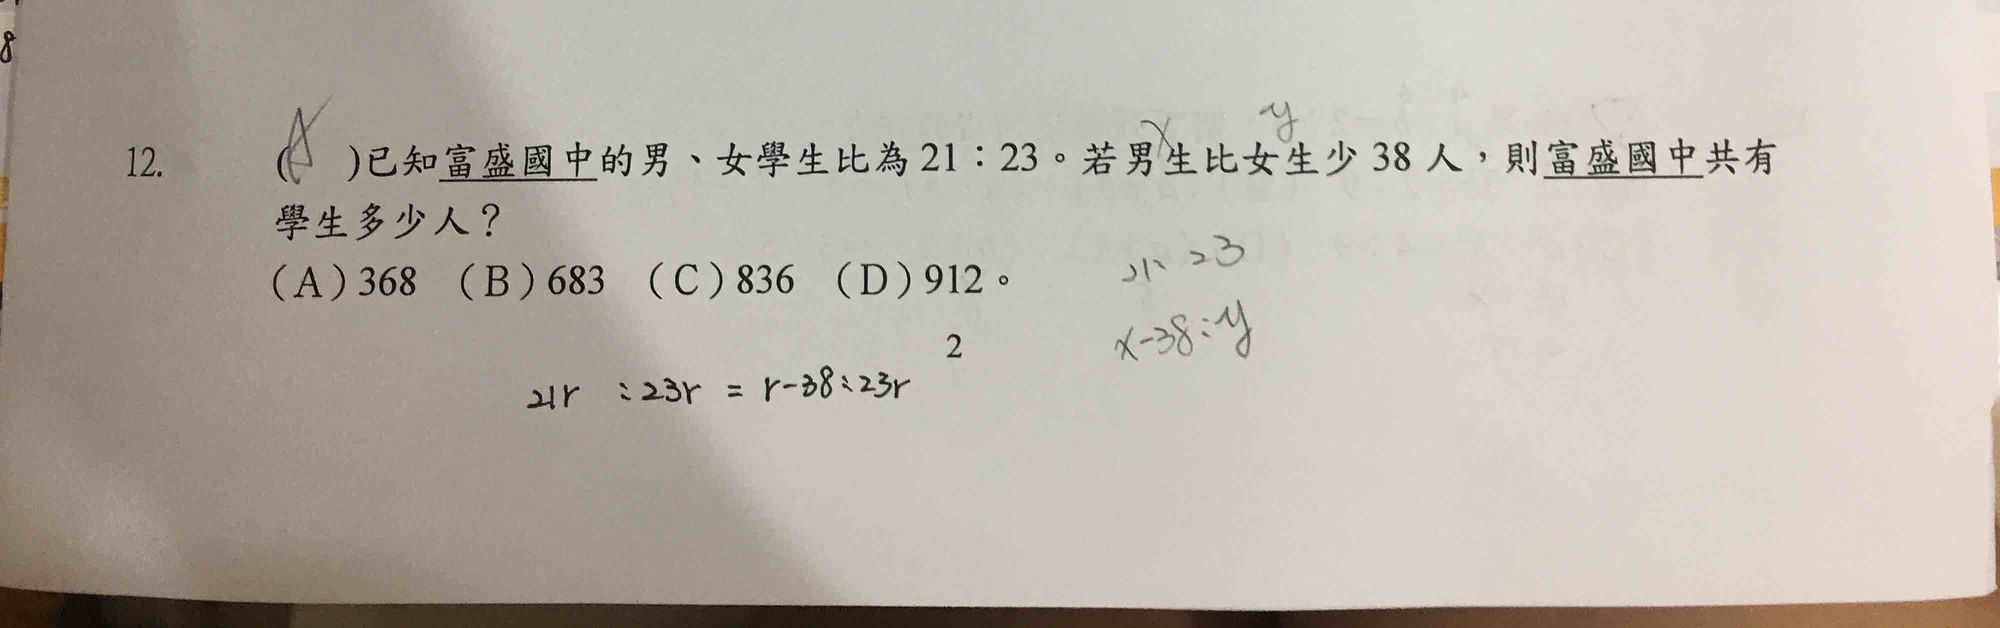 8
x y
12. (A )已知富盛國中的男、女學生比為 21：23。若男生比女生少 38 人，則富盛國中共有
學生多少人？
(A) 368 (B) 683 (C) 836 (D) 912。
21: 23
x-38:y
2
21r :23r = r-38:23r